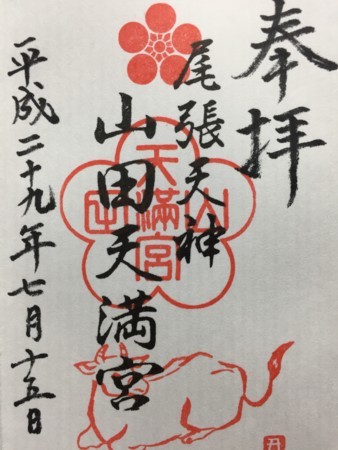 奉拝
尾張天神
山田天満宮
天満宮
山田
平成二十九年七月十五日